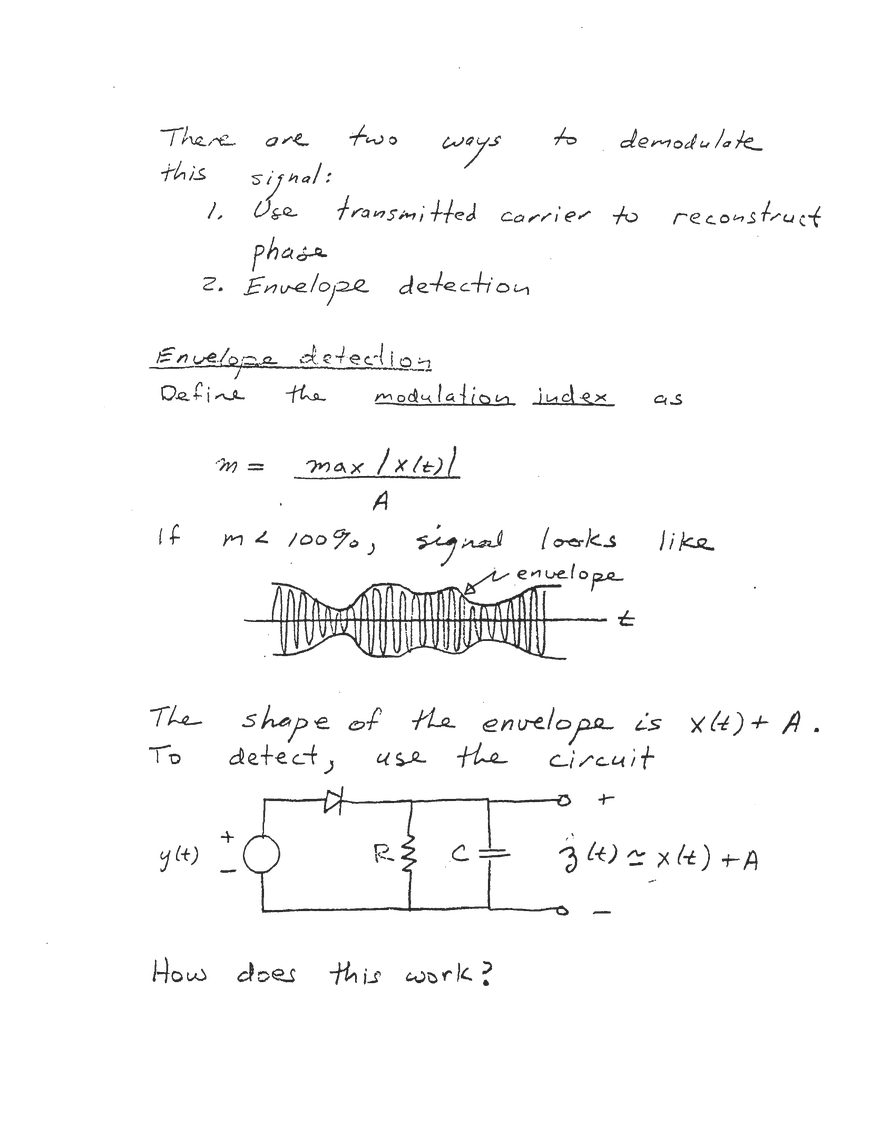 There are two ways to demodulate
this signal:
1. Use transmitted carrier to reconstruct
phase
2. Envelope detection
Envelope detection
Define the modulation index as
m = max |x(t)|
A
If m < 100%, signal looks like
envelope
t
The shape of the envelope is x(t) + A.
To detect, use the circuit
+
y(t) + − R C z(t) ≃ x(t) + A
−
How does this work?